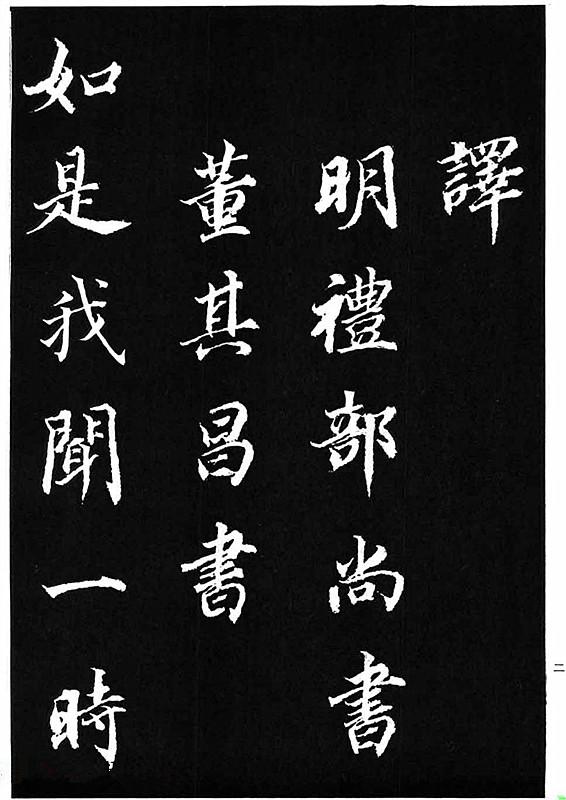 譯
明禮部尚書
董其昌書
如是我聞一時
二